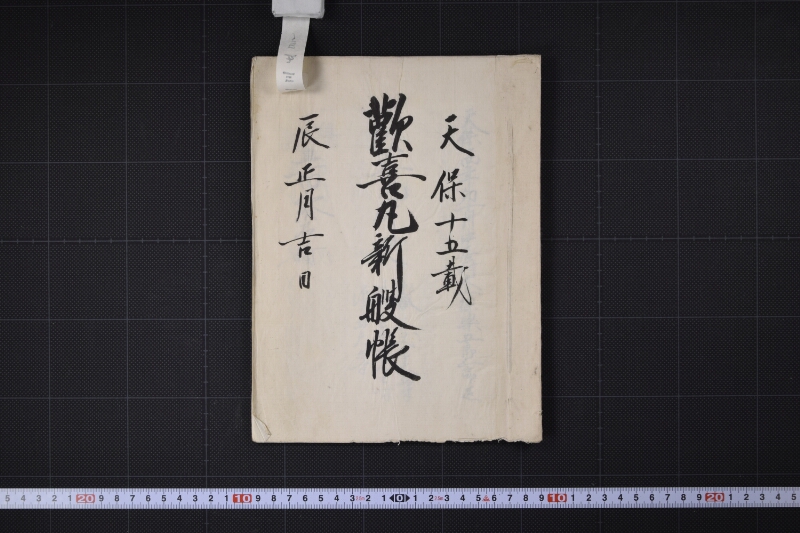 天保十五載
歡喜丸新艘帳
辰正月吉日